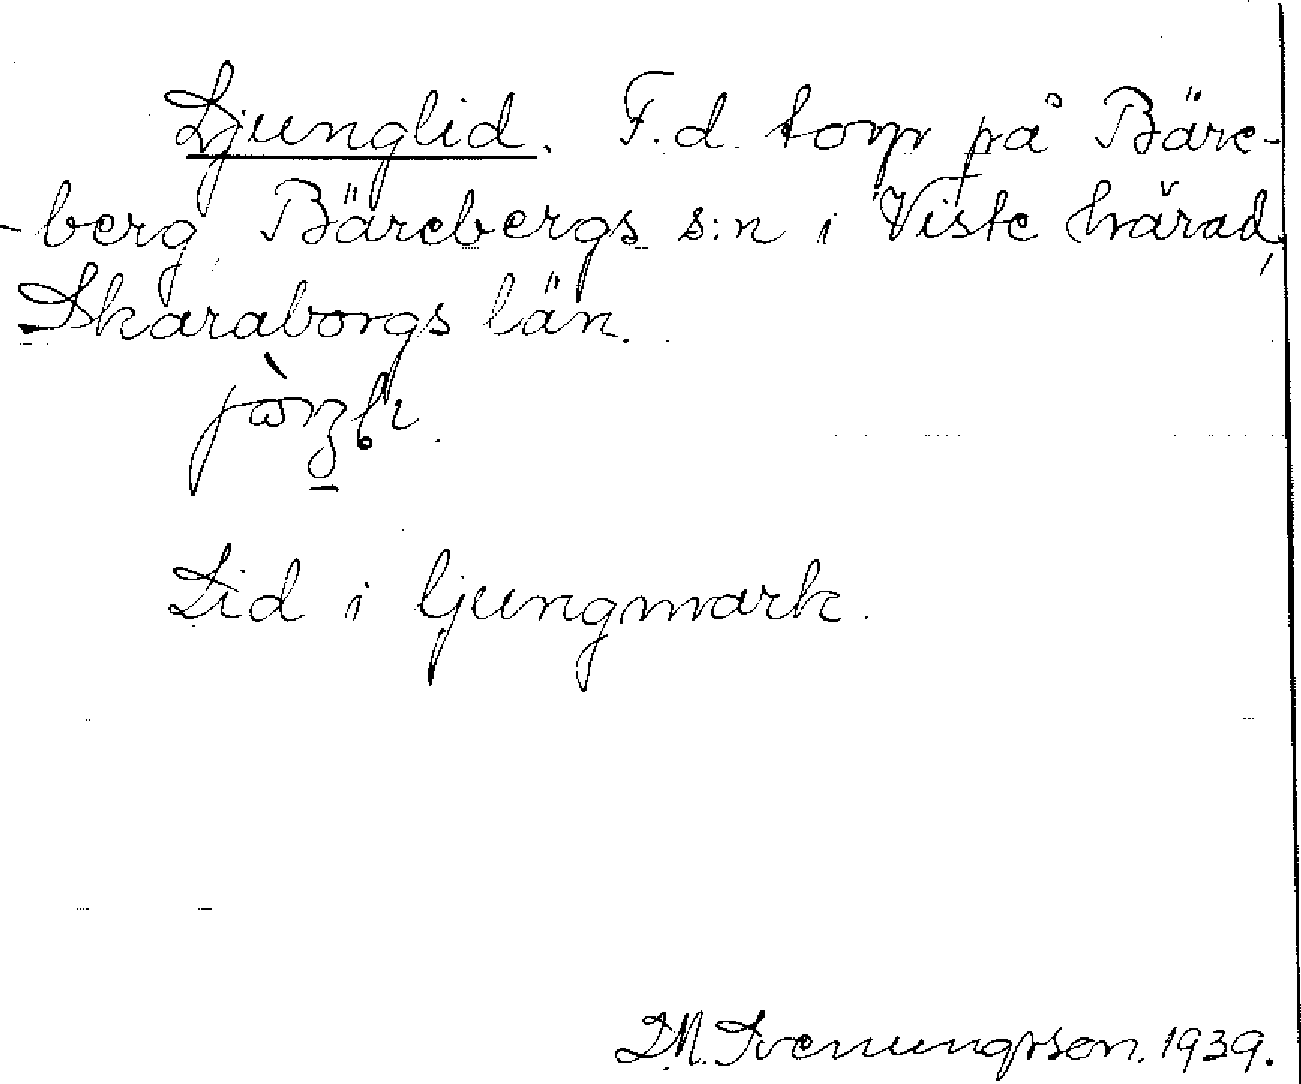 Ljunglid. F.d. torp på Bäre-
-berg, Bärebergs s:n i Viste härad,
Skaraborgs län.
Lid i ljungmark.
Svenungsson. 1939.